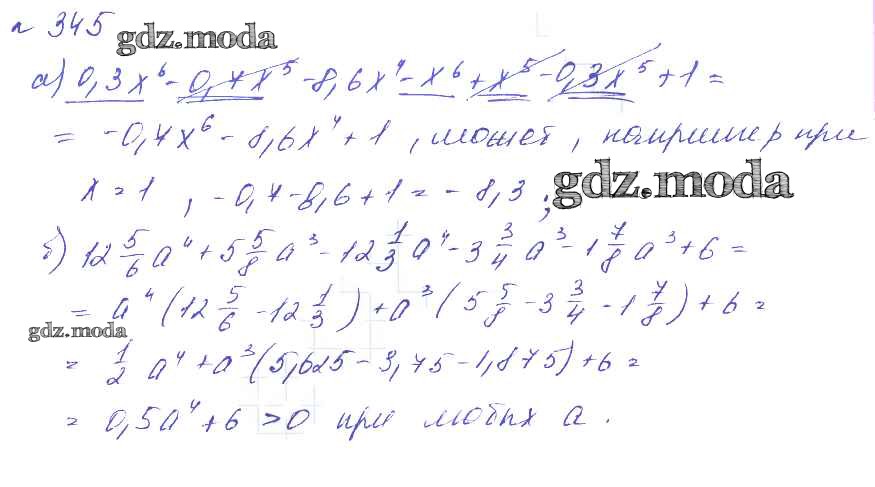 № 345
gdz.moda
а) 0,3x⁶ - 0,7x⁵ - 8,6x⁴ - x⁶ + x⁵ - 0,3x⁵ + 1 =
= -0,7x⁶ - 8,6x⁴ + 1, может, например при
x = 1, -0,7-8,6+1 = -8,3;
gdz.moda
б) 12 5/6 a⁴ + 5 5/8 a³ - 12 1/3 a⁴ - 3 3/4 a³ - 1 7/8 a³ + 6 =
= a⁴ (12 5/6 - 12 1/3) + a³ (5 5/8 - 3 3/4 - 1 7/8) + 6 =
gdz.moda
= 1/2 a⁴ + a³ (5,625 - 3,75 - 1,875) + 6 =
= 0,5a⁴ + 6 > 0 при любых a.